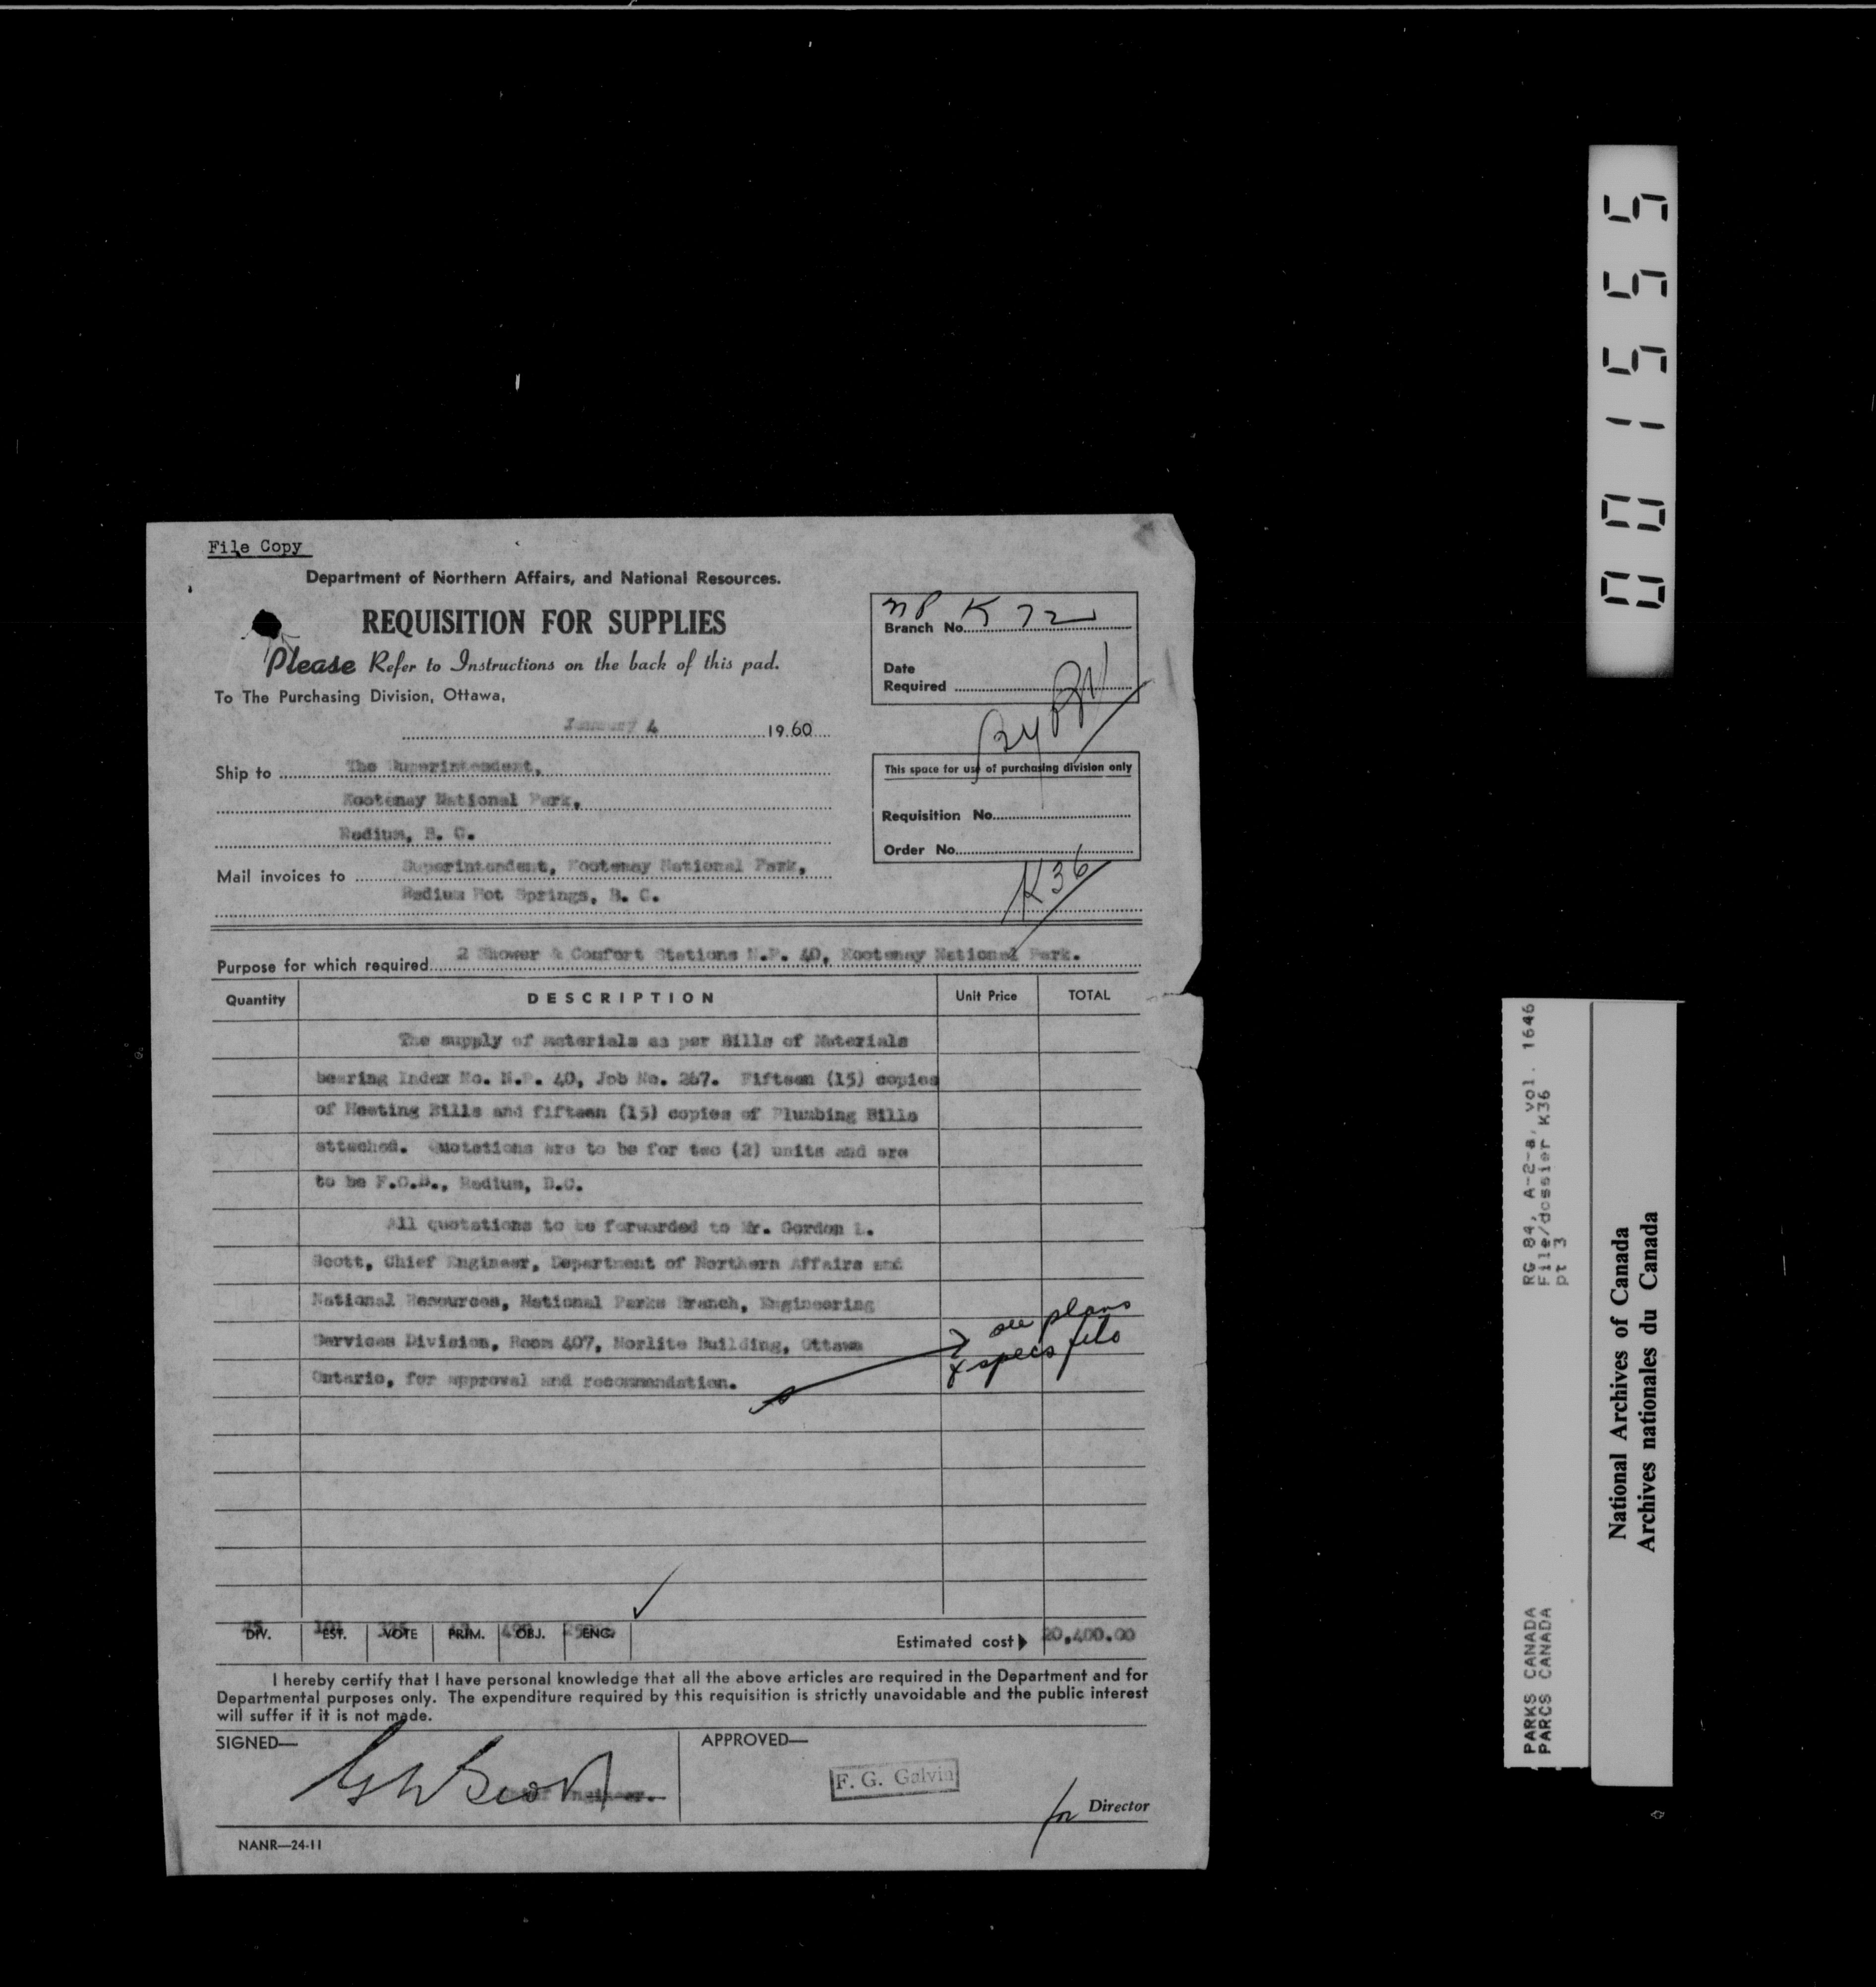 File Copy
Department of Northern Affairs, and National Resources.
REQUISITION FOR SUPPLIES
Please Refer to Instructions on the back of this pad.
To The Purchasing Division, Ottawa,
January 4 1960
NP K 72
Branch No.
Date
Required
Ship to The Superintendent,
Kootenay National Park,
Radium, B. C.
This space for use of purchasing division only
Requisition No.
Order No.
K36
Mail invoices to Superintendent, Kootenay National Park,
Radium Hot Springs, B. C.
Purpose for which required 2 Shower & Comfort Stations N.P. 40, Kootenay National Park.
Quantity DESCRIPTION Unit Price TOTAL
The supply of materials as per Bills of Materials
bearing Index No. N.P. 40, Job No. 267. Fifteen (15) copies
of Heating Bills and fifteen (15) copies of Plumbing Bills
attached. Quotations are to be for two (2) units and are
to be F.O.B., Radium, B.C.
All quotations to be forwarded to Mr. Gordon L.
Scott, Chief Engineer, Department of Northern Affairs and
National Resources, National Parks Branch, Engineering
Services Division, Room 407, Norlite Building, Ottawa
Ontario, for approval and recommendation.
see plans
& specs file
DIV. EST. VOTE PRIM. OBJ. ENG.
Estimated cost 20,400.00
I hereby certify that I have personal knowledge that all the above articles are required in the Department and for
Departmental purposes only. The expenditure required by this requisition is strictly unavoidable and the public interest
will suffer if it is not made.
SIGNED—
APPROVED—
GLScott
Chief Engineer.
F. G. Galvin
for Director
NANR—24-11
001555
RG 84, A-2-a, vol. 1646
File/dossier K36
pt 3
PARKS CANADA
PARCS CANADA
National Archives of Canada
Archives nationales du Canada